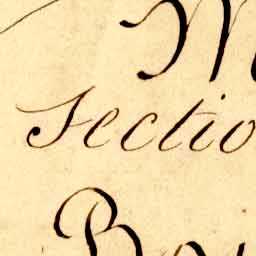 M
Sectio
Bo